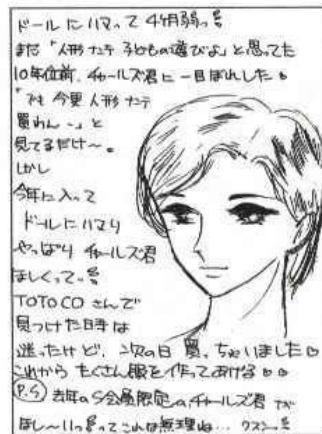 ドールにハマって 4ヶ月弱っ
まだ「人形ナンテ 子どもの遊びよ」と思ってた
10年位前、チャールズ君に一目ぼれしました
「でも 今更 人形ナンテ
買わん〜」と
見てるだけ〜。
しかし
今年に入って
ドールにハマり
やっぱり チャールズ君
ほしくってっ
TOTOCO さんで
見つけた時は
迷ったけど、次の日 買っちゃいました♡
これから たくさん服を作ってあげる♡♡
P.S 去年のS会員限定のチャールズ君
ほし〜いっ ってこれは無理ね… クスンっ